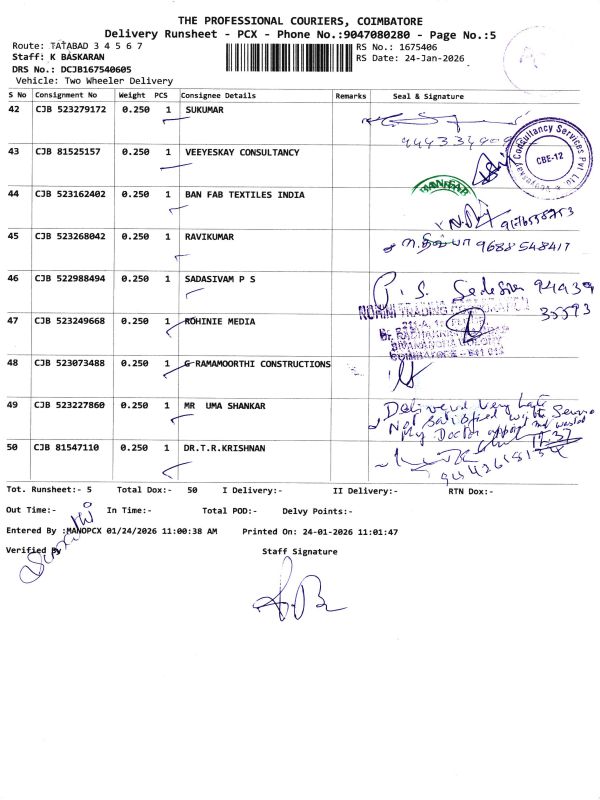 THE PROFESSIONAL COURIERS, COIMBATORE
Delivery Runsheet - PCX - Phone No.:9047080280 - Page No.:5
Route: TATABAD 3 4 5 6 7
RS No.: 1675406
Staff: K BASKARAN
RS Date: 24-Jan-2026
DRS No.: DCJB167540605
Vehicle: Two Wheeler Delivery
S No Consignment No Weight PCS Consignee Details Remarks Seal & Signature
42 CJB 523279172 0.250 1 SUKUMAR
43 CJB 81525157 0.250 1 VEEYESKAY CONSULTANCY
CBE-12
44 CJB 523162402 0.250 1 BAN FAB TEXTILES INDIA
45 CJB 523268042 0.250 1 RAVIKUMAR
9688548417
46 CJB 522988494 0.250 1 SADASIVAM P S
P. S. 94439
35593
47 CJB 523249668 0.250 1 ROHINIE MEDIA
48 CJB 523073488 0.250 1 G RAMAMOORTHI CONSTRUCTIONS
49 CJB 523227860 0.250 1 MR UMA SHANKAR
Delivered Very Late
Not Satisfied with Service
My Doctor
50 CJB 81547110 0.250 1 DR.T.R.KRISHNAN
Tot. Runsheet:- 5 Total Dox:- 50 I Delivery:- II Delivery:- RTN Dox:-
Out Time:- In Time:- Total POD:- Delvy Points:-
Entered By :MANOPCX 01/24/2026 11:00:38 AM Printed On: 24-01-2026 11:01:47
Verified By Staff Signature